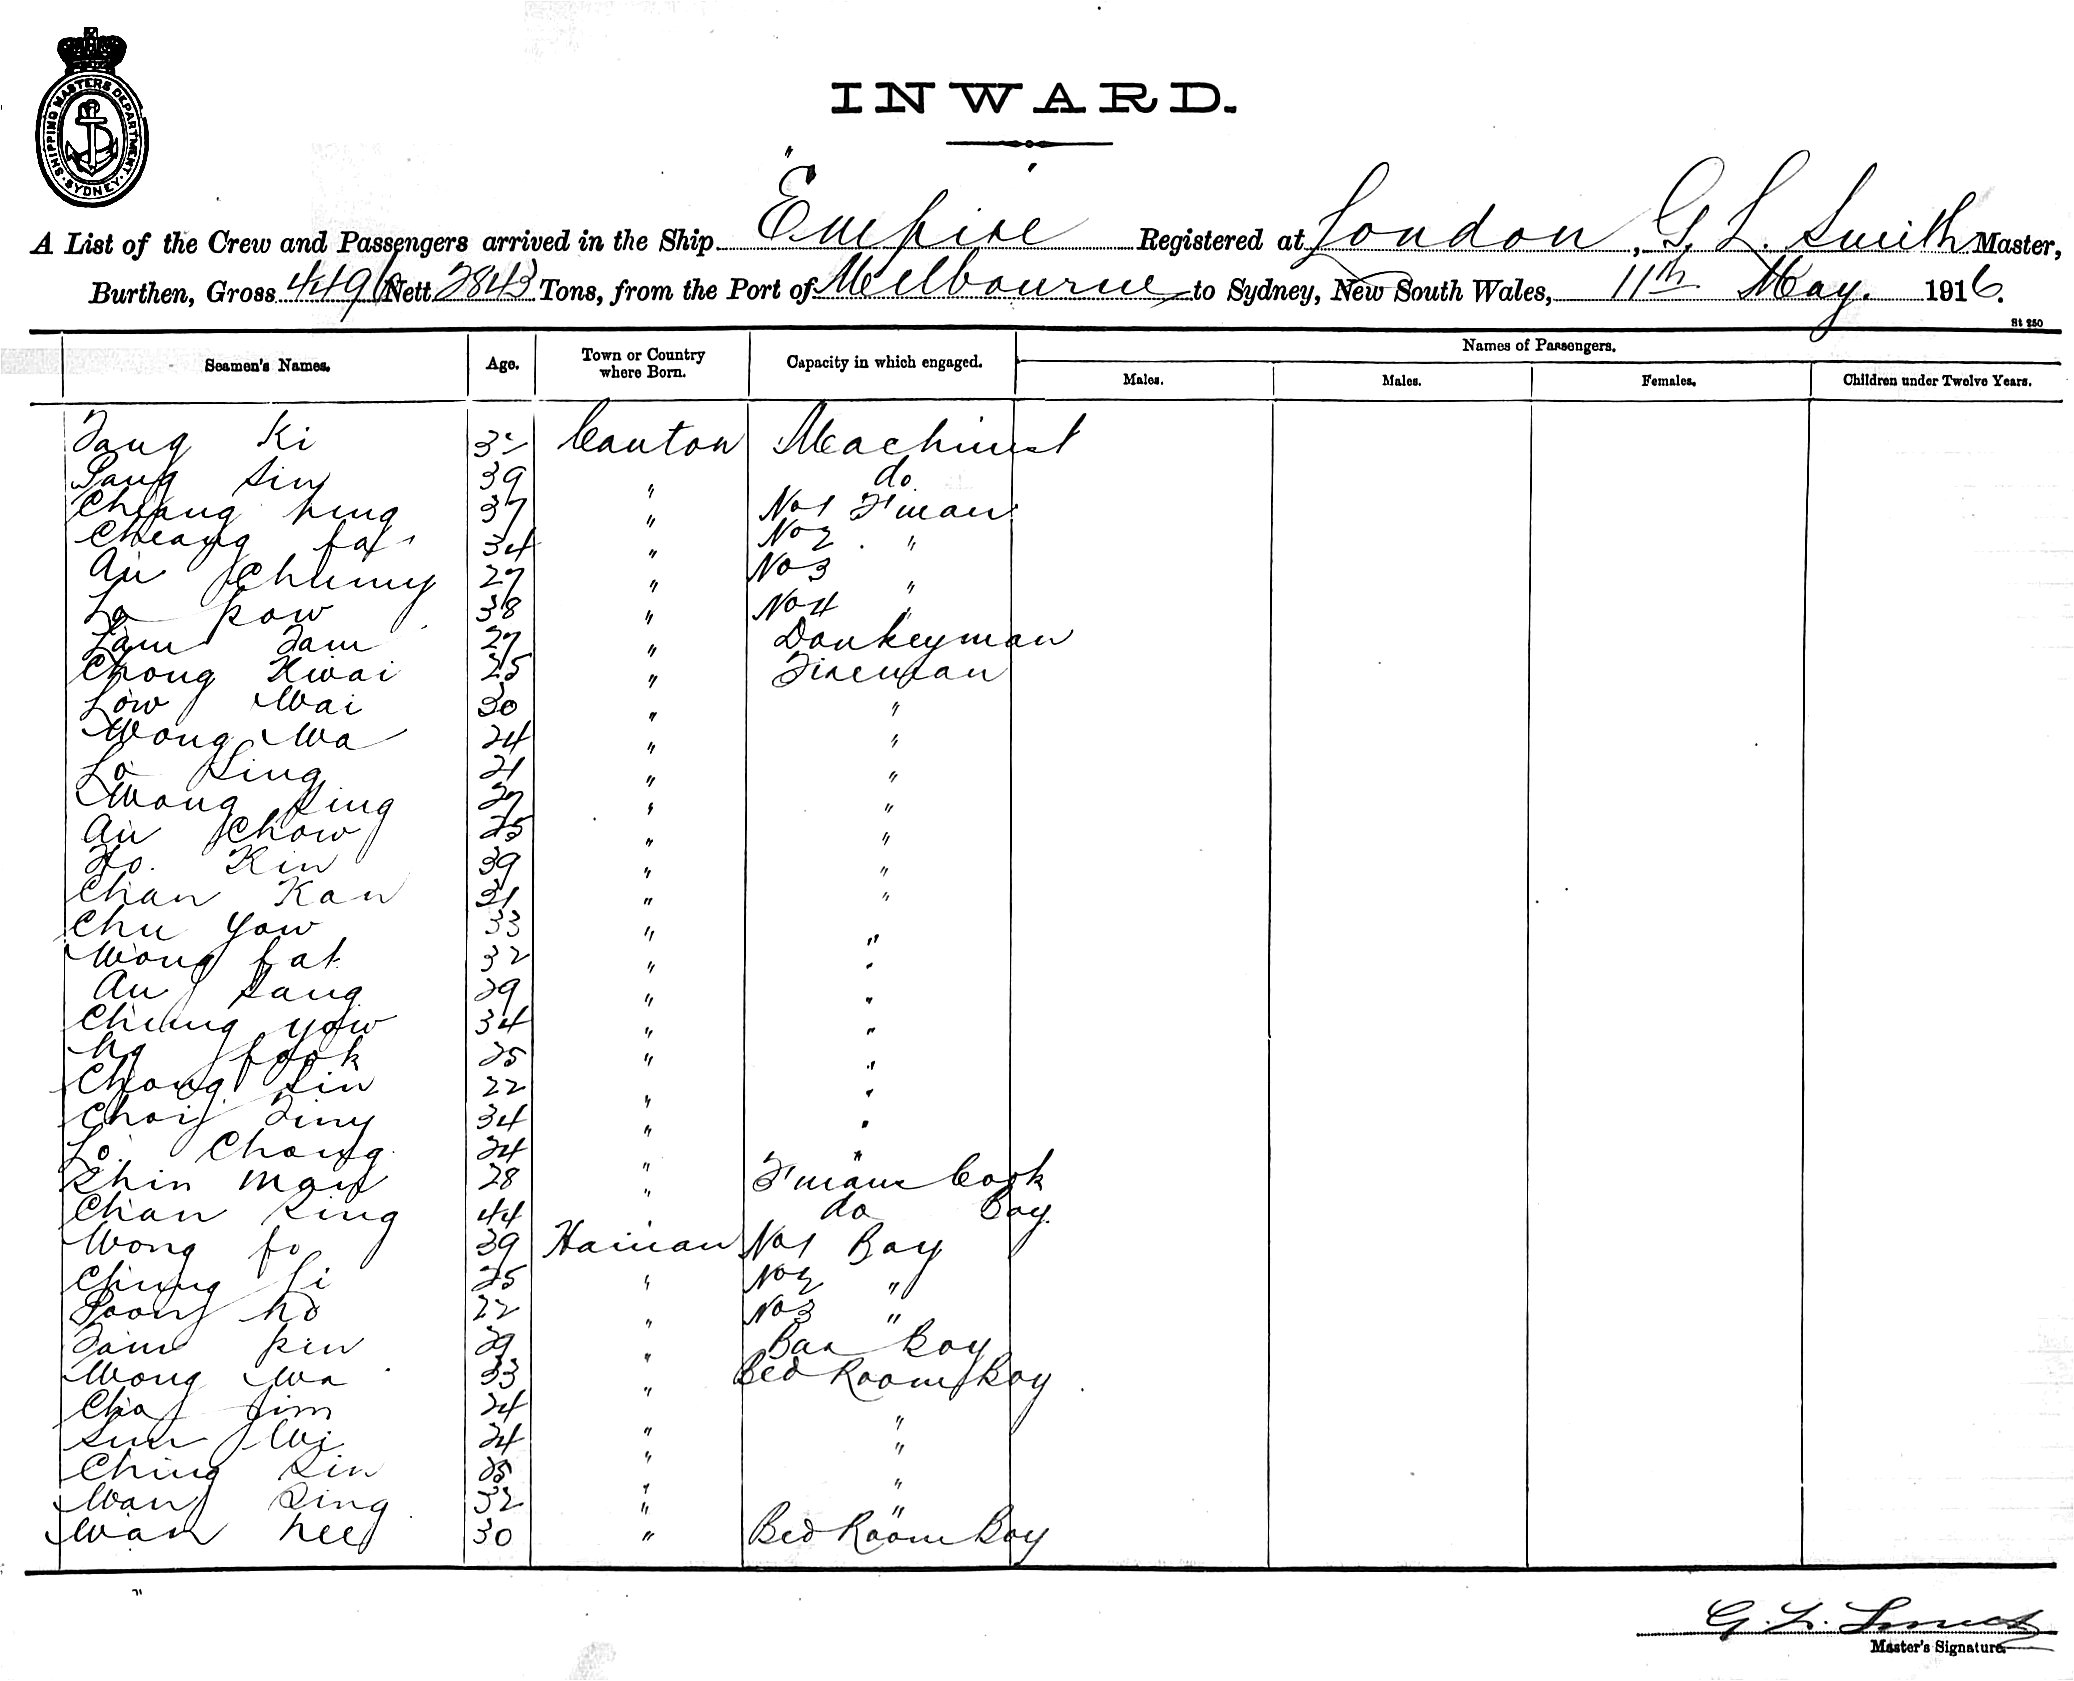 SHIPPING MASTERS DEPARTMENT · SYDNEY ·
INWARD.
A List of the Crew and Passengers arrived in the Ship "Empire" Registered at London, G. L. Smith Master,
Burthen, Gross 4496 Nett 2843 Tons, from the Port of Melbourne to Sydney, New South Wales, 11th May. 1916.
St 250
Seamen's Names. Age. Town or Country where Born. Capacity in which engaged. Names of Passengers.
Males. Males. Females. Children under Twelve Years.
Tang Ki Canton Machinist
Pang Sin 39 " do
Cheang hing 37 " No1 F'man
Cheang fat 34 " No2 "
Au Chumy 27 " No3 "
Lo kow 38 " No4 "
Lam Tam 27 " Donkeyman
Chong Kwai 25 " Fireman
Low Wai 30 " "
Wong Wa 24 " "
Lo Sing 21 " "
Wong Sing 27 " "
Au Chow 25 " "
Ho. Kin 39 " "
Chan Kan 31 " "
Chu Yow 33 " "
Wong fat 32 " "
Au Sang 29 " "
Chung Yow 34 " "
Ng fook 25 " "
Chong Sin 22 " "
Choi Ting 34 " "
Lo Chong 24 " "
Shin Man 28 " F'mans Cook
Chan Sing 44 " do Boy
Wong fo 39 Hainan No1 Boy
Chung Li 25 " No2 "
Poon ho 22 " No3 "
Tam kin 29 " Bar Boy
Wong Wa 33 " Bed Room Boy
Cha Jim 24 " "
Sun Wi 24 " "
Ching Sin 25 " "
Wan Sing 32 " "
Wan hee 30 " Bed Room Boy
G. L. Smith
Master's Signature.